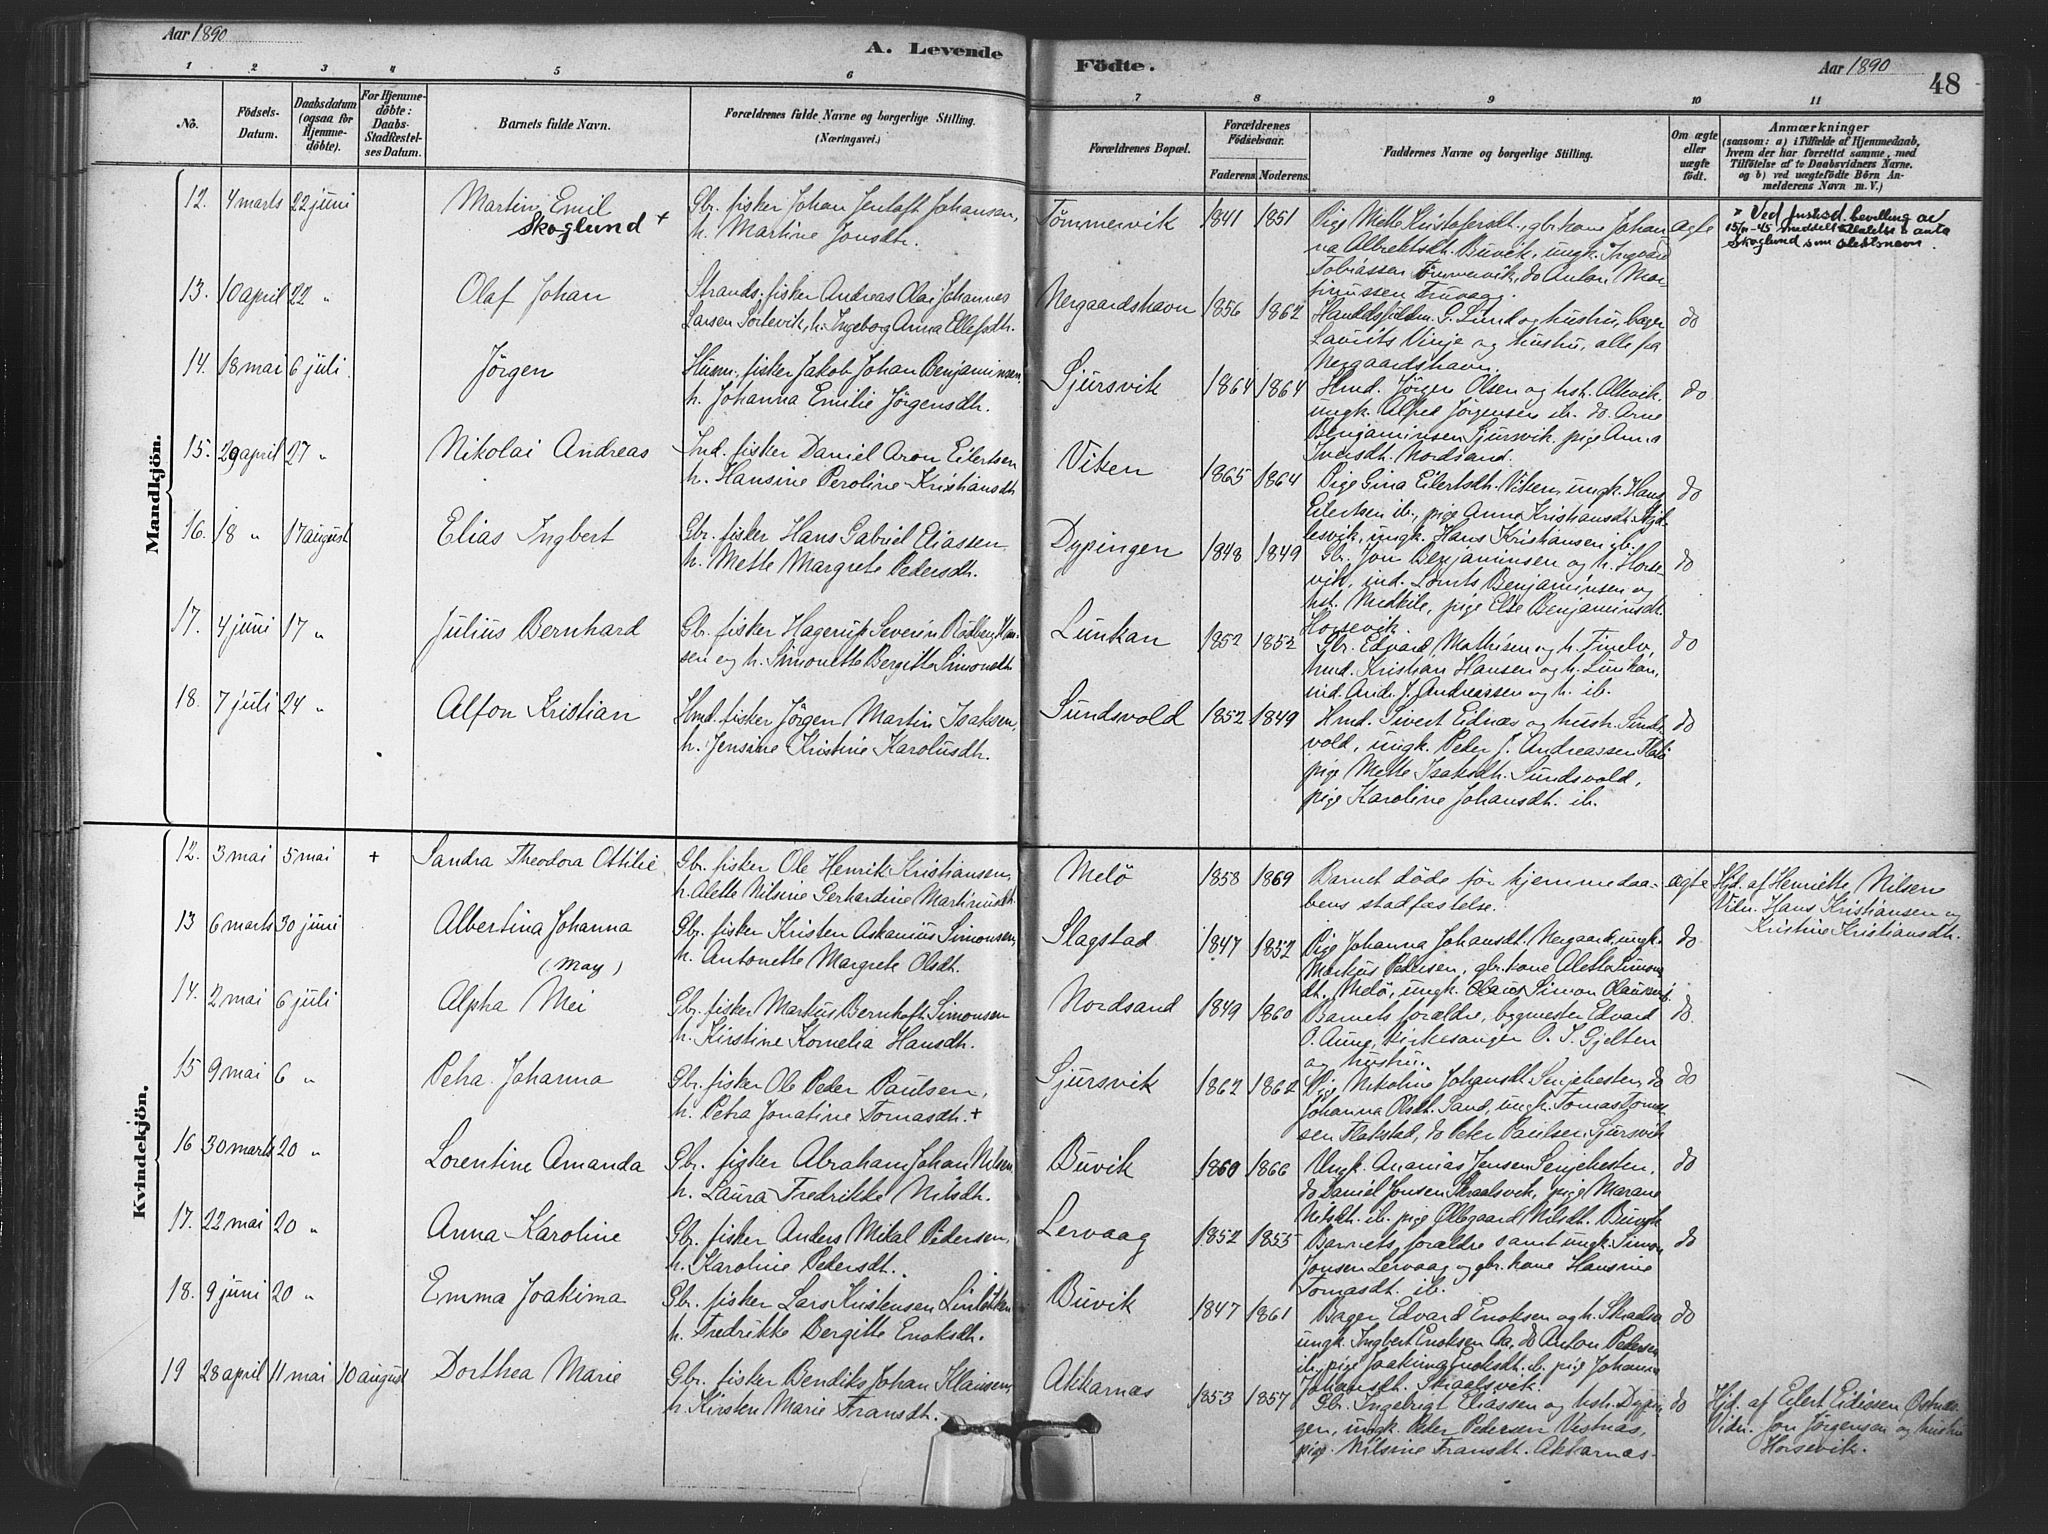 Aar 1890
A. Levende
Födte.
Aar 1890
48
1 2 3 4 5 6 7 8 9 10 11
No.
Födsels-
Datum.
Daabsdatum
(ogsaa for
Hjemme-
döbte).
For Hjemme-
döbte:
Daabs-
Stadfæstel-
ses Datum.
Barnets fulde Navn.
Forældrenes fulde Navne og borgerlige Stilling.
(Næringsvei.)
Forældrenes Bopæl.
Forældrenes
Födselsaar.
Faderens. Moderens.
Faddernes Navne og borgerlige Stilling.
Om ægte
eller
uægte
födt.
Anmærkninger
(saasom: a) i Tilfælde af Hjemmedaab,
hvem der har forrettet samme, med
Tilföielse af to Daabsvidners Navne.
og b) ved uægtefödte Börn An-
melderens Navn m. V.)
Mandkjön.
12. 4 marts 22 juni
Martin Emil
Skoglund +
Gbr. fisker Johan Jentoft Johansen,
h. Martine Jonsdtr.
Tömmervik
1841 1851
Pige Mette Kristofersdt., gbr. kone Johan-
na Albrektsdt. Buvik, ungk. Ingvard
Tobiassen Tömmervik, do Anton Mar-
tinussen Truvaag.
ægte
bevilling av
15/11-45 meddelt tillatelse å anta
Skoglund som slektsnavn.
13. 10 april 22 "
Olaf Johan
Strands. fisker Andreas Olai Johannes
Larsen Sortevik, h. Ingeborg Anna Ellefsdt.
Nergaardshavn
1856 1862
G. Lund og hustru, bager
Laurits Vinje og hustru, alle fra
Nergaardshavn.
do
14. 18 mai 6 juli
Jörgen
Husm. fisker Jakob Johan Benjaminsen,
h. Johanna Emilie Jörgensdt.
Sjursvik
1864 1864
Hmd. Jörgen Olsen og hst. Altevik
ungk. Alfred Jörgensen ib. do. Arne
Benjaminsen Sjursvik, pige Anna
Iversdt. Nordsand.
do
15. 29 april 27 "
Nikolai Andreas
Ind. fisker Daniel Aron Eilertsen
h. Hansine Peroline Kristiansdt.
Viken
1865 1864
Pige Gina Eilertsdt. Viken, ungk. Hans
Eilertsen ib., pige Anna Kristiansdt.
ungk. Hans Kristiansen ib.
do
16. 18 " 17 august
Elias Ingbert
Gbr. fisker Hans Gabriel Eliassen
h. Mette Margrete Pedersdt.
Dypingen
1848 1849
Gb. Jon Benjaminsen og h. Horse-
vik, ind. Lorits Benjaminsen og
hst. Medkile, pige Else Benjaminsdt.
Horsevik.
do
17. 4 juni 17 "
Julius Bernhard
Gbr. fisker Hagerup Severin Rodberg Han-
sen og h. Simonette Bergitte Simonsdt.
Lunkan
1852 1853
Gbr. Edvard Mathisen og h.
hmd. Kristian Hansen og h. Lunkan,
ind. And. J. Andreassen og h. ib.
do
18. 7 juli 24 "
Alfon Kristian
Hmd. fisker Jörgen Martin Isaksen,
h. Jensine Kristine Karolusdt.
Sundsvold
1852 1849
Hmd. Sivert Eidnæs og hustr. Sunds-
vold, ungk. Peder J. Andreassen
pige Mette Isaksdt. Sundsvold,
pige Karoline Johansdt. ib.
do
Kvindekjön.
12. 3 mai 5 mai +
Sandra Theodora Ottilie
Gbr. fisker Ole Henrik Kristiansen,
h. Alette Nilsine Gerhardine Martinusdt.
Melö
1858 1869
Barnet döde för hjemmedaa-
bens stadfæstelse.
ægte
Hjd. af Henriette Nilsen
Vidn. Hans Kristiansen og
Kristine Kristiansdt.
13 6 marts 30 juni
Albertina Johanna
(May)
Gbr. fisker Kristen Askanius Simonsen,
h. Antonette Margrete Olsdt.
Slagstad
1847 1852
Pige Johanna Johansdt. Nergaard, ungk.
Markus Pedersen, gbr. kone Aletta Simons
dt. Melö, ungk. Olaus Simon
do
14. 2 mai 6 juli
Alpha Mei
Gbr. fisker Markus Bernhoft Simonsen
h. Kirstine Kornelia Hansdt.
Nordsand
1849 1860
Barnets forældre, bygmester Edvard
O. Aune, kirkesanger O. J. Gjelten
og hustru.
do
15 9 mai 6 "
Petra Johanna
Gbr. fisker Ole Peder Paulsen,
h. Petra Jonatine Tomasdt. +
Sjursvik
1862 1862
Pige Nikoline Johansdt. Senjehesten, do
Johanna Olsdt. Sand, ungk. Tomas Tomas-
sen Flakstad, do Peter Paulsen Sjursvik
do
16 30 marts 20 "
Lorentine Amanda
Gbr. fisker Abraham Johan Nilsen,
h. Laura Fredrikke Nilsdt.
Buvik
1860 1866
Ungk. Ananias Jensen Senjehesten,
do Daniel Jonsen Skaalsvik, pige Marane
Nilsdt. ib. pige Ollegaard Nilsdt. Buvik
do
17. 22 mai 20 "
Anna Karoline
Gbr. fisker Anders Mikal Pedersen,
h. Karoline Pedersdt.
Lervaag
1852 1855
Barnets forældre samt ungk. Simon
Jonsen Lervaag og gbr. kone Hansine
Tomasdt. ib.
do
18. 9 juni 20 "
Emma Joakima
Gbr. fisker Lars Kristensen
h. Fredrikke Bergitte Enoksdt.
Buvik
1847 1861
Bager Edvard Enoksen og h.
ungk. Ingbert Enoksen Aa, do Anton Petersen
ib., pige Joakima Enoksdt. ib. pige Johanna
Johansdt. Skaalsvik.
do
19 28 april 11 mai 10 august
Dorthea Marie
Gbr. fisker Bendiks Johan Klausen,
h. Kirsten Marie Fransdt.
Akkarnæs
1853 1857
Gb. Ingebrigt Eliassen og hst. Dypin-
gen, ungk. Peder Pedersen Vestnæs,
pige Nilsine Fransdt. Akkarnæs.
do
Hjd. af Eilert Eidissen
Vidn. Jon Jörgensen og hustru
Horsevik.